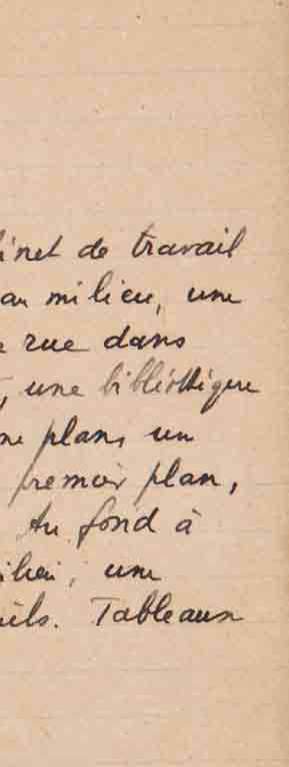 inet de travail
au milieu, une
rue dans
, une bibliothèque
plan, un
premier plan,
Au fond à
, une
Tableaux